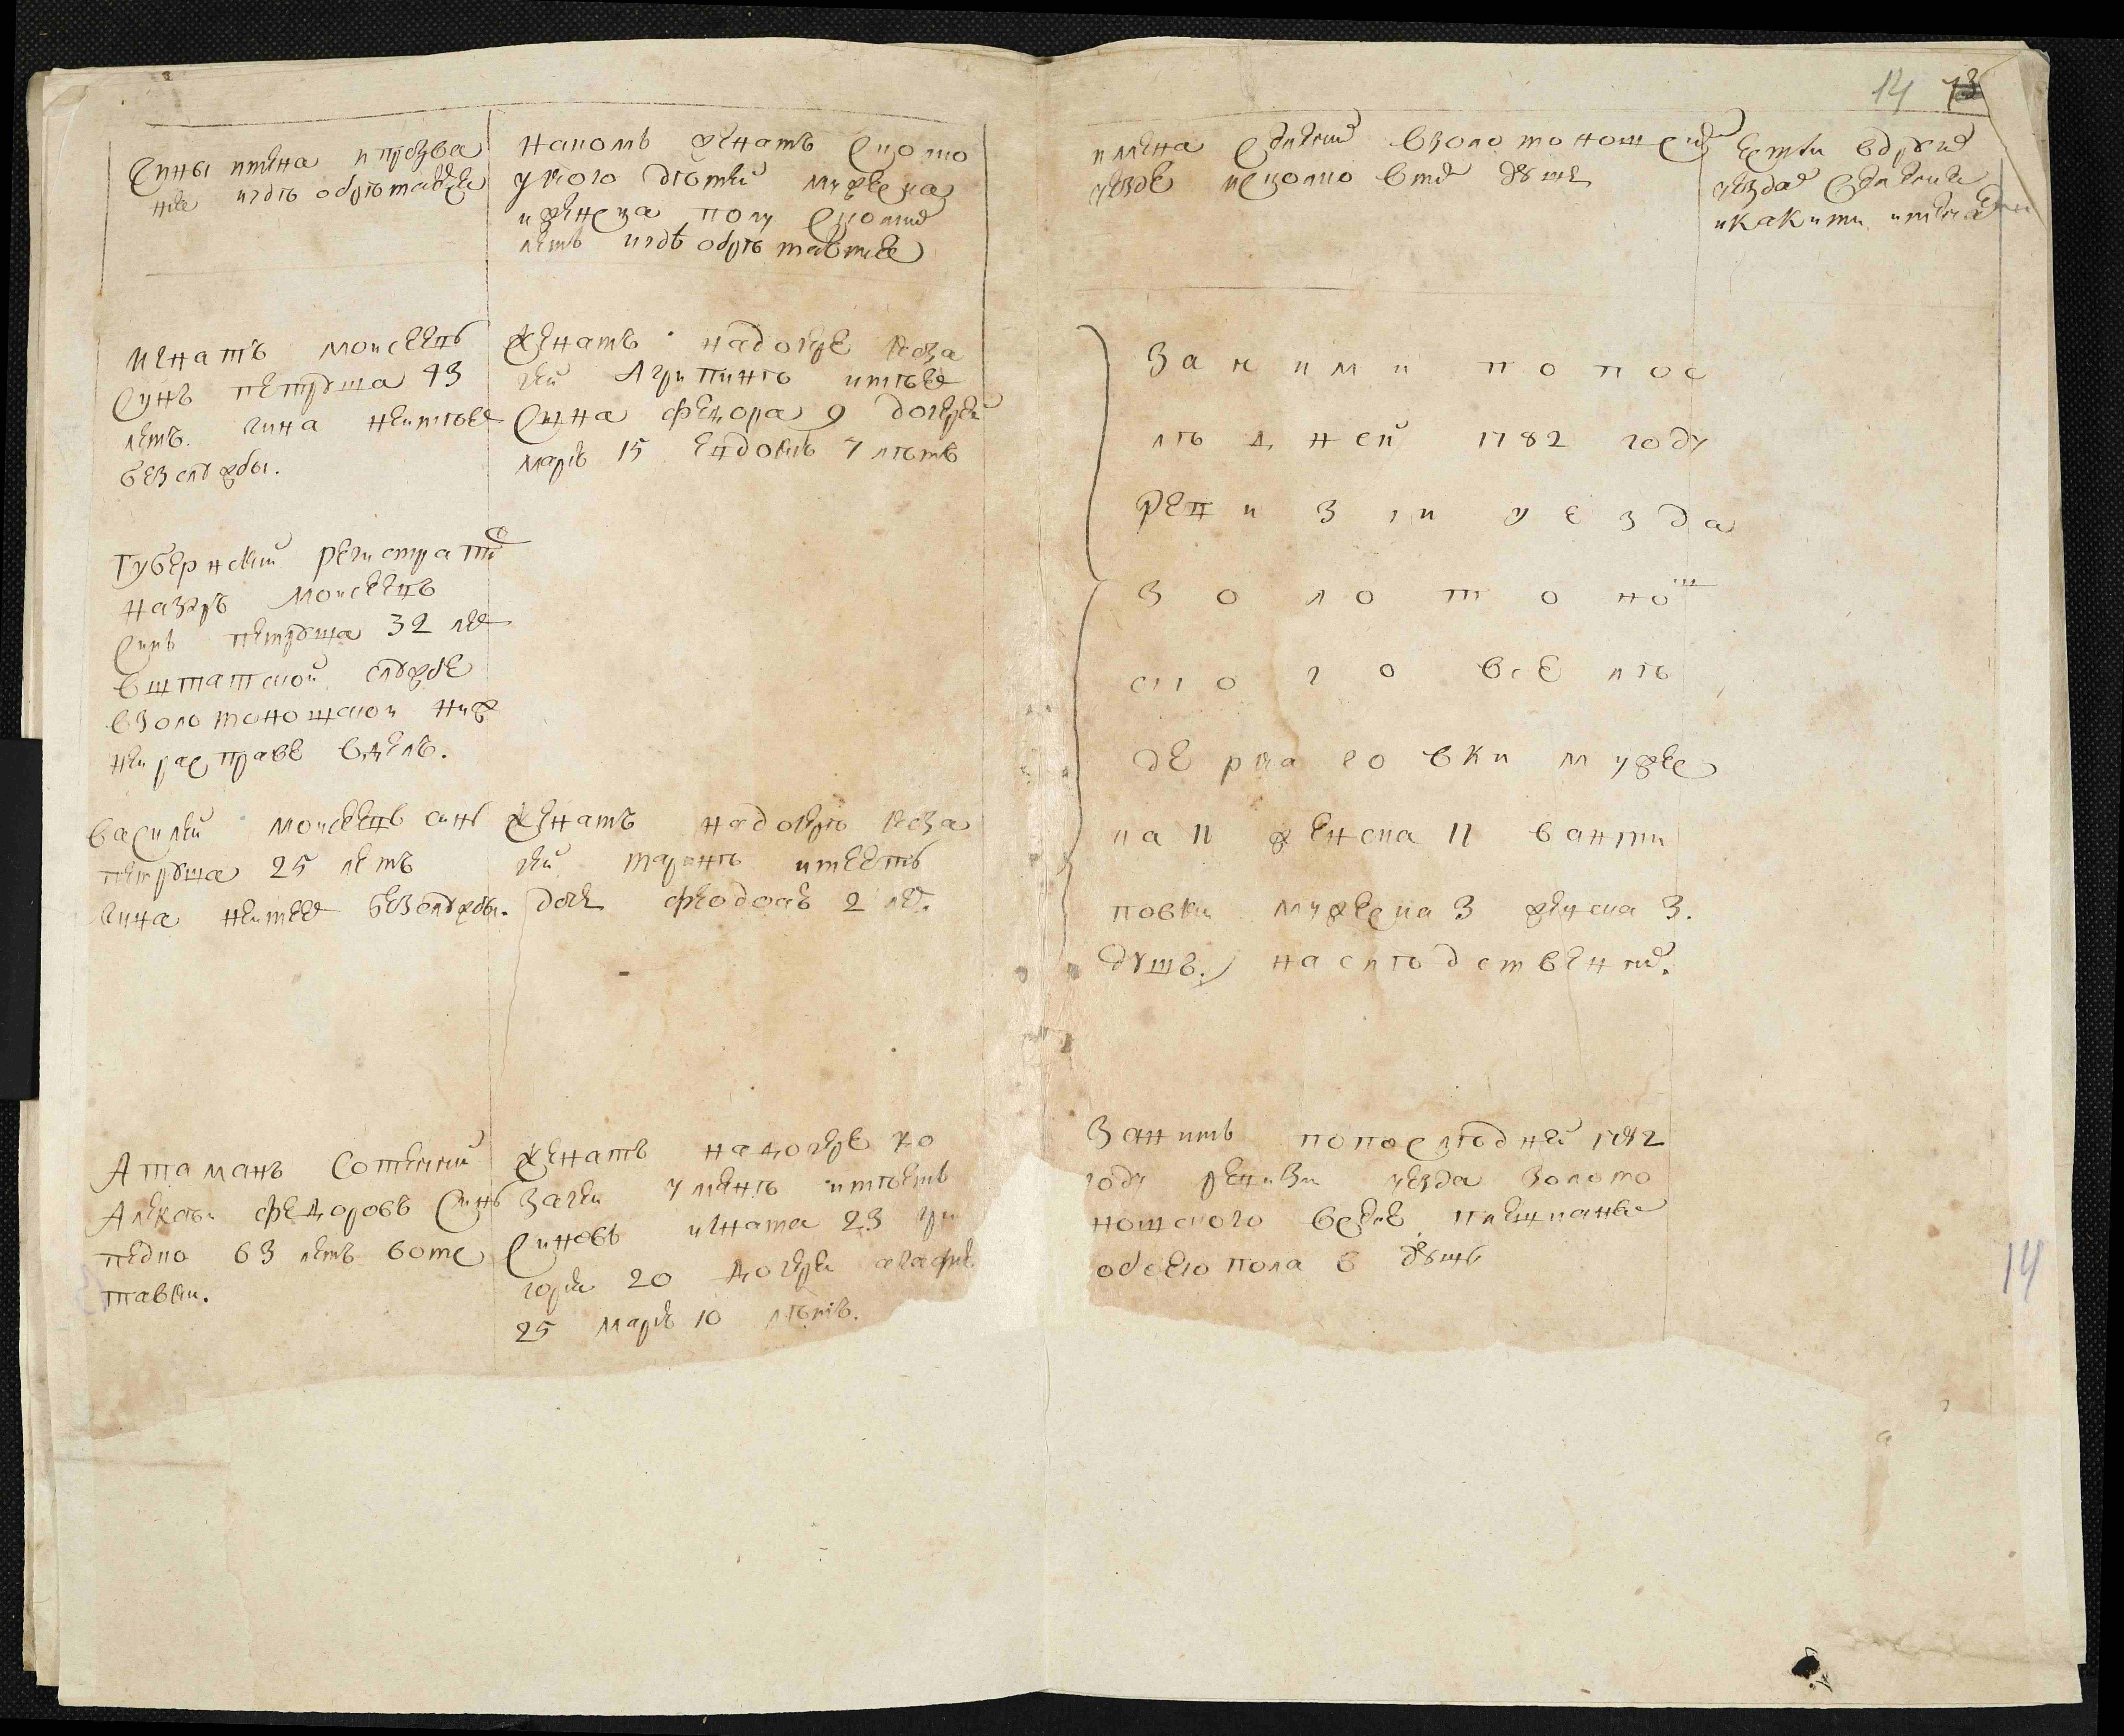 14 13
Чины имена и прозва
ние и где обретаюцся
на комъ женатъ сколко
у кого детей мужеска
и женска полу сколких
летъ и где обретаютца
имена селений в золотоношском
уезде и сколко в них душъ
ест ли в других
уездах селении
и какими имены
Игнатъ моисеевъ
сынъ петруша 43
летъ. чина неимеет
без службы.
женатъ на дочере коза
чей Агрипине имеет
сына федора 9 дочерей
марю 15 евдокию 7 летъ
Губернский регистратор
Назаръ моисеевъ
синъ петруша 32 лет
в штатской службе
в золотоношской ниж
ней расправе в делъ.
василей моисеевъ синъ
петруша 25 летъ
чина неимеет без службы.
женатъ на дочере коза
чей марине имеетъ
дочь феодосю 2 лет.
За ними по пос
ледней 1782 году
ревизии уезда
золотонош
ского в селе
деркаговки муже
ка 11 женска 11 в антипо
повки мужеска 3 женска 3.
душъ. наследственних.
Атаманъ Сотенний
Алексей федоровъ синъ
педко 63 летъ в отс
тавки.
женатъ на дочере ко
зачей улияне имеетъ
синовъ игната 23 гри
гория 20 дочери агафию
25 марю 10 летъ.
За нимъ по последней 1782
году ревизи уезда золото
ношского в селе
обоего пола 6 душъ
14